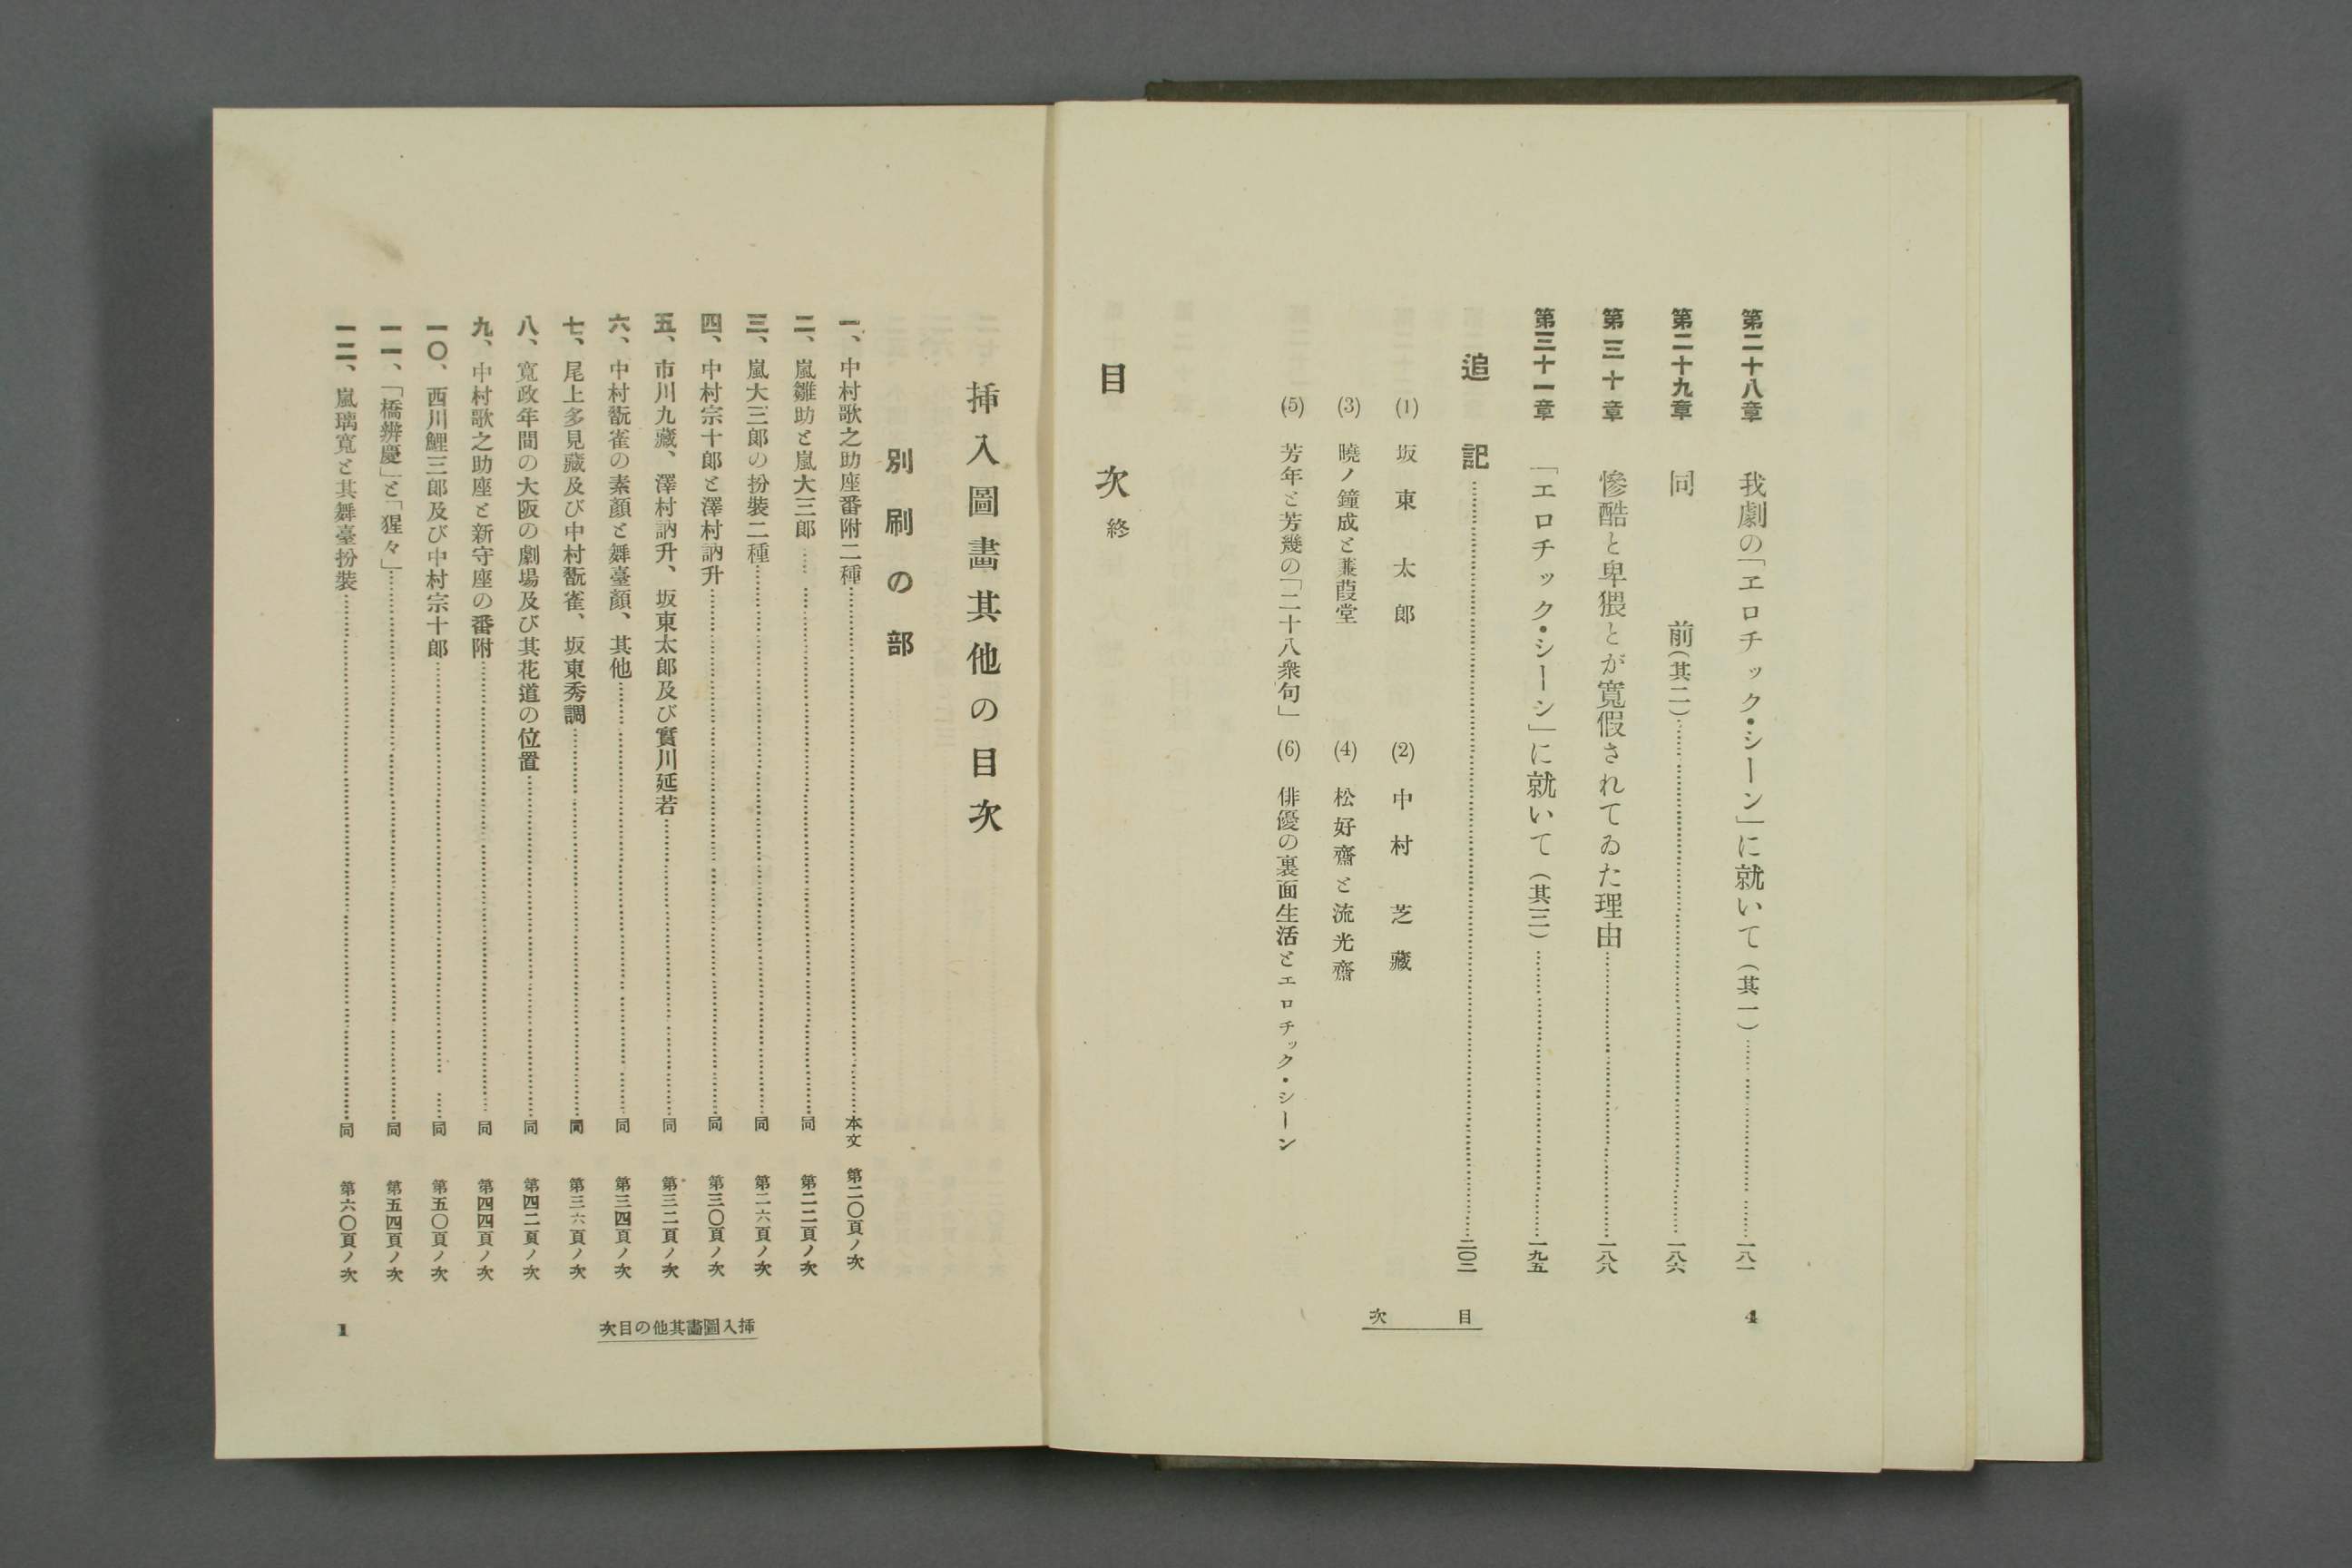 第二十八章 我劇の「エロチック・シーン」に就いて（其一）……一八一
第二十九章 同 前（其二）……一八六
第三十章 慘酷と卑猥とが寬假されてゐた理由……一八八
第三十一章 「エロチック・シーン」に就いて（其三）……一九五
追記……二〇二
(1) 坂東太郎 (2) 中村芝藏
(3) 曉ノ鐘成と蒹葭堂 (4) 松好齋と流光齋
(5) 芳年と芳幾の「二十八衆句」 (6) 俳優の裏面生活とエロチック・シーン
目次終
目次
4
挿入圖畵其他の目次
別刷の部
一、中村歌之助座番附二種……本文 第二〇頁ノ次
二、嵐雛助と嵐大三郎……同 第二二頁ノ次
三、嵐大三郎の扮裝二種……同 第二六頁ノ次
四、中村宗十郎と澤村訥升……同 第三〇頁ノ次
五、市川九藏、澤村訥升、坂東太郎及び實川延若……同 第三二頁ノ次
六、中村翫雀の素顏と舞臺顏、其他……同 第三四頁ノ次
七、尾上多見藏及び中村翫雀、坂東秀調……同 第三六頁ノ次
八、寬政年間の大阪の劇場及び其花道の位置……同 第四二頁ノ次
九、中村歌之助座と新守座の番附……同 第四四頁ノ次
一〇、西川鯉三郎及び中村宗十郎……同 第五〇頁ノ次
一一、「橋辨慶」と「猩々」……同 第五四頁ノ次
一二、嵐璃寬と其舞臺扮裝……同 第六〇頁ノ次
次目の他其畵圖入挿
1